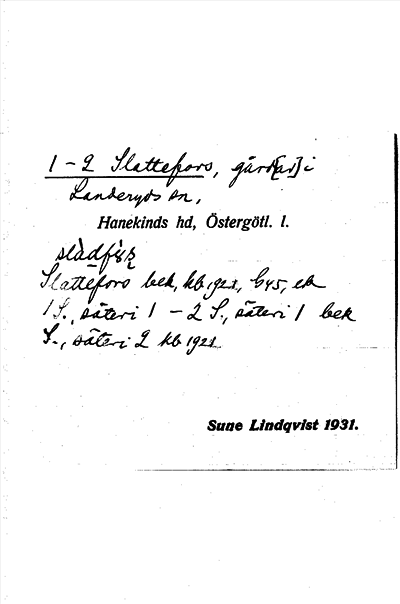 1-2 Slattefors, gård[ar] i
Landeryds sn,
Hanekinds hd, Östergötl. l.
Slattefors bek, kb 1921, G45, ek
1 S., säteri 1 - 2 S., säteri 1 bek
S., säteri 2 kb 1921
Sune Lindqvist 1931.